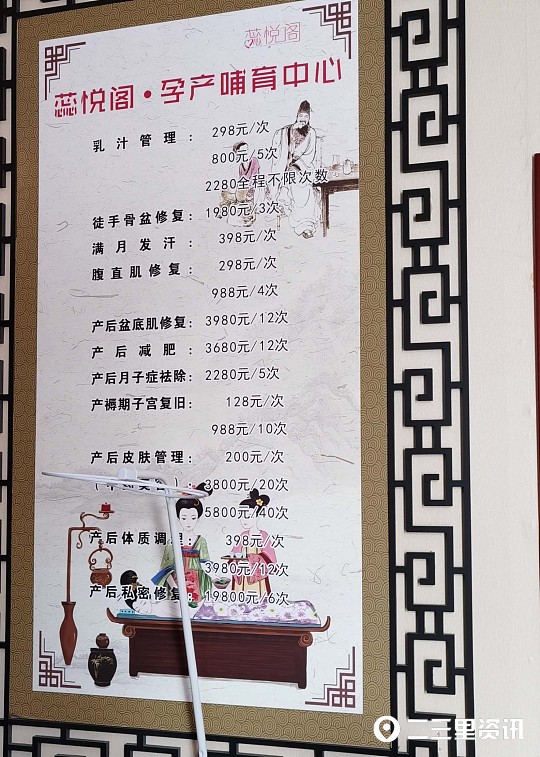 蕊悦阁
蕊悦阁·孕产哺育中心
乳汁管理： 298元/次
800元/5次
2280全程不限次数
徒手骨盆修复： 1980元/3次
满月发汗： 398元/次
腹直肌修复： 298元/次
988元/4次
产后盆底肌修复： 3980元/12次
产后减肥： 3680元/12次
产后月子症祛除： 2280元/5次
产褥期子宫复旧： 128元/次
988元/10次
产后皮肤管理： 200元/次
3800元/20次
5800元/40次
产后体质调理： 398元/次
3980元/12次
产后私密修复： 19800元/6次
二三里资讯